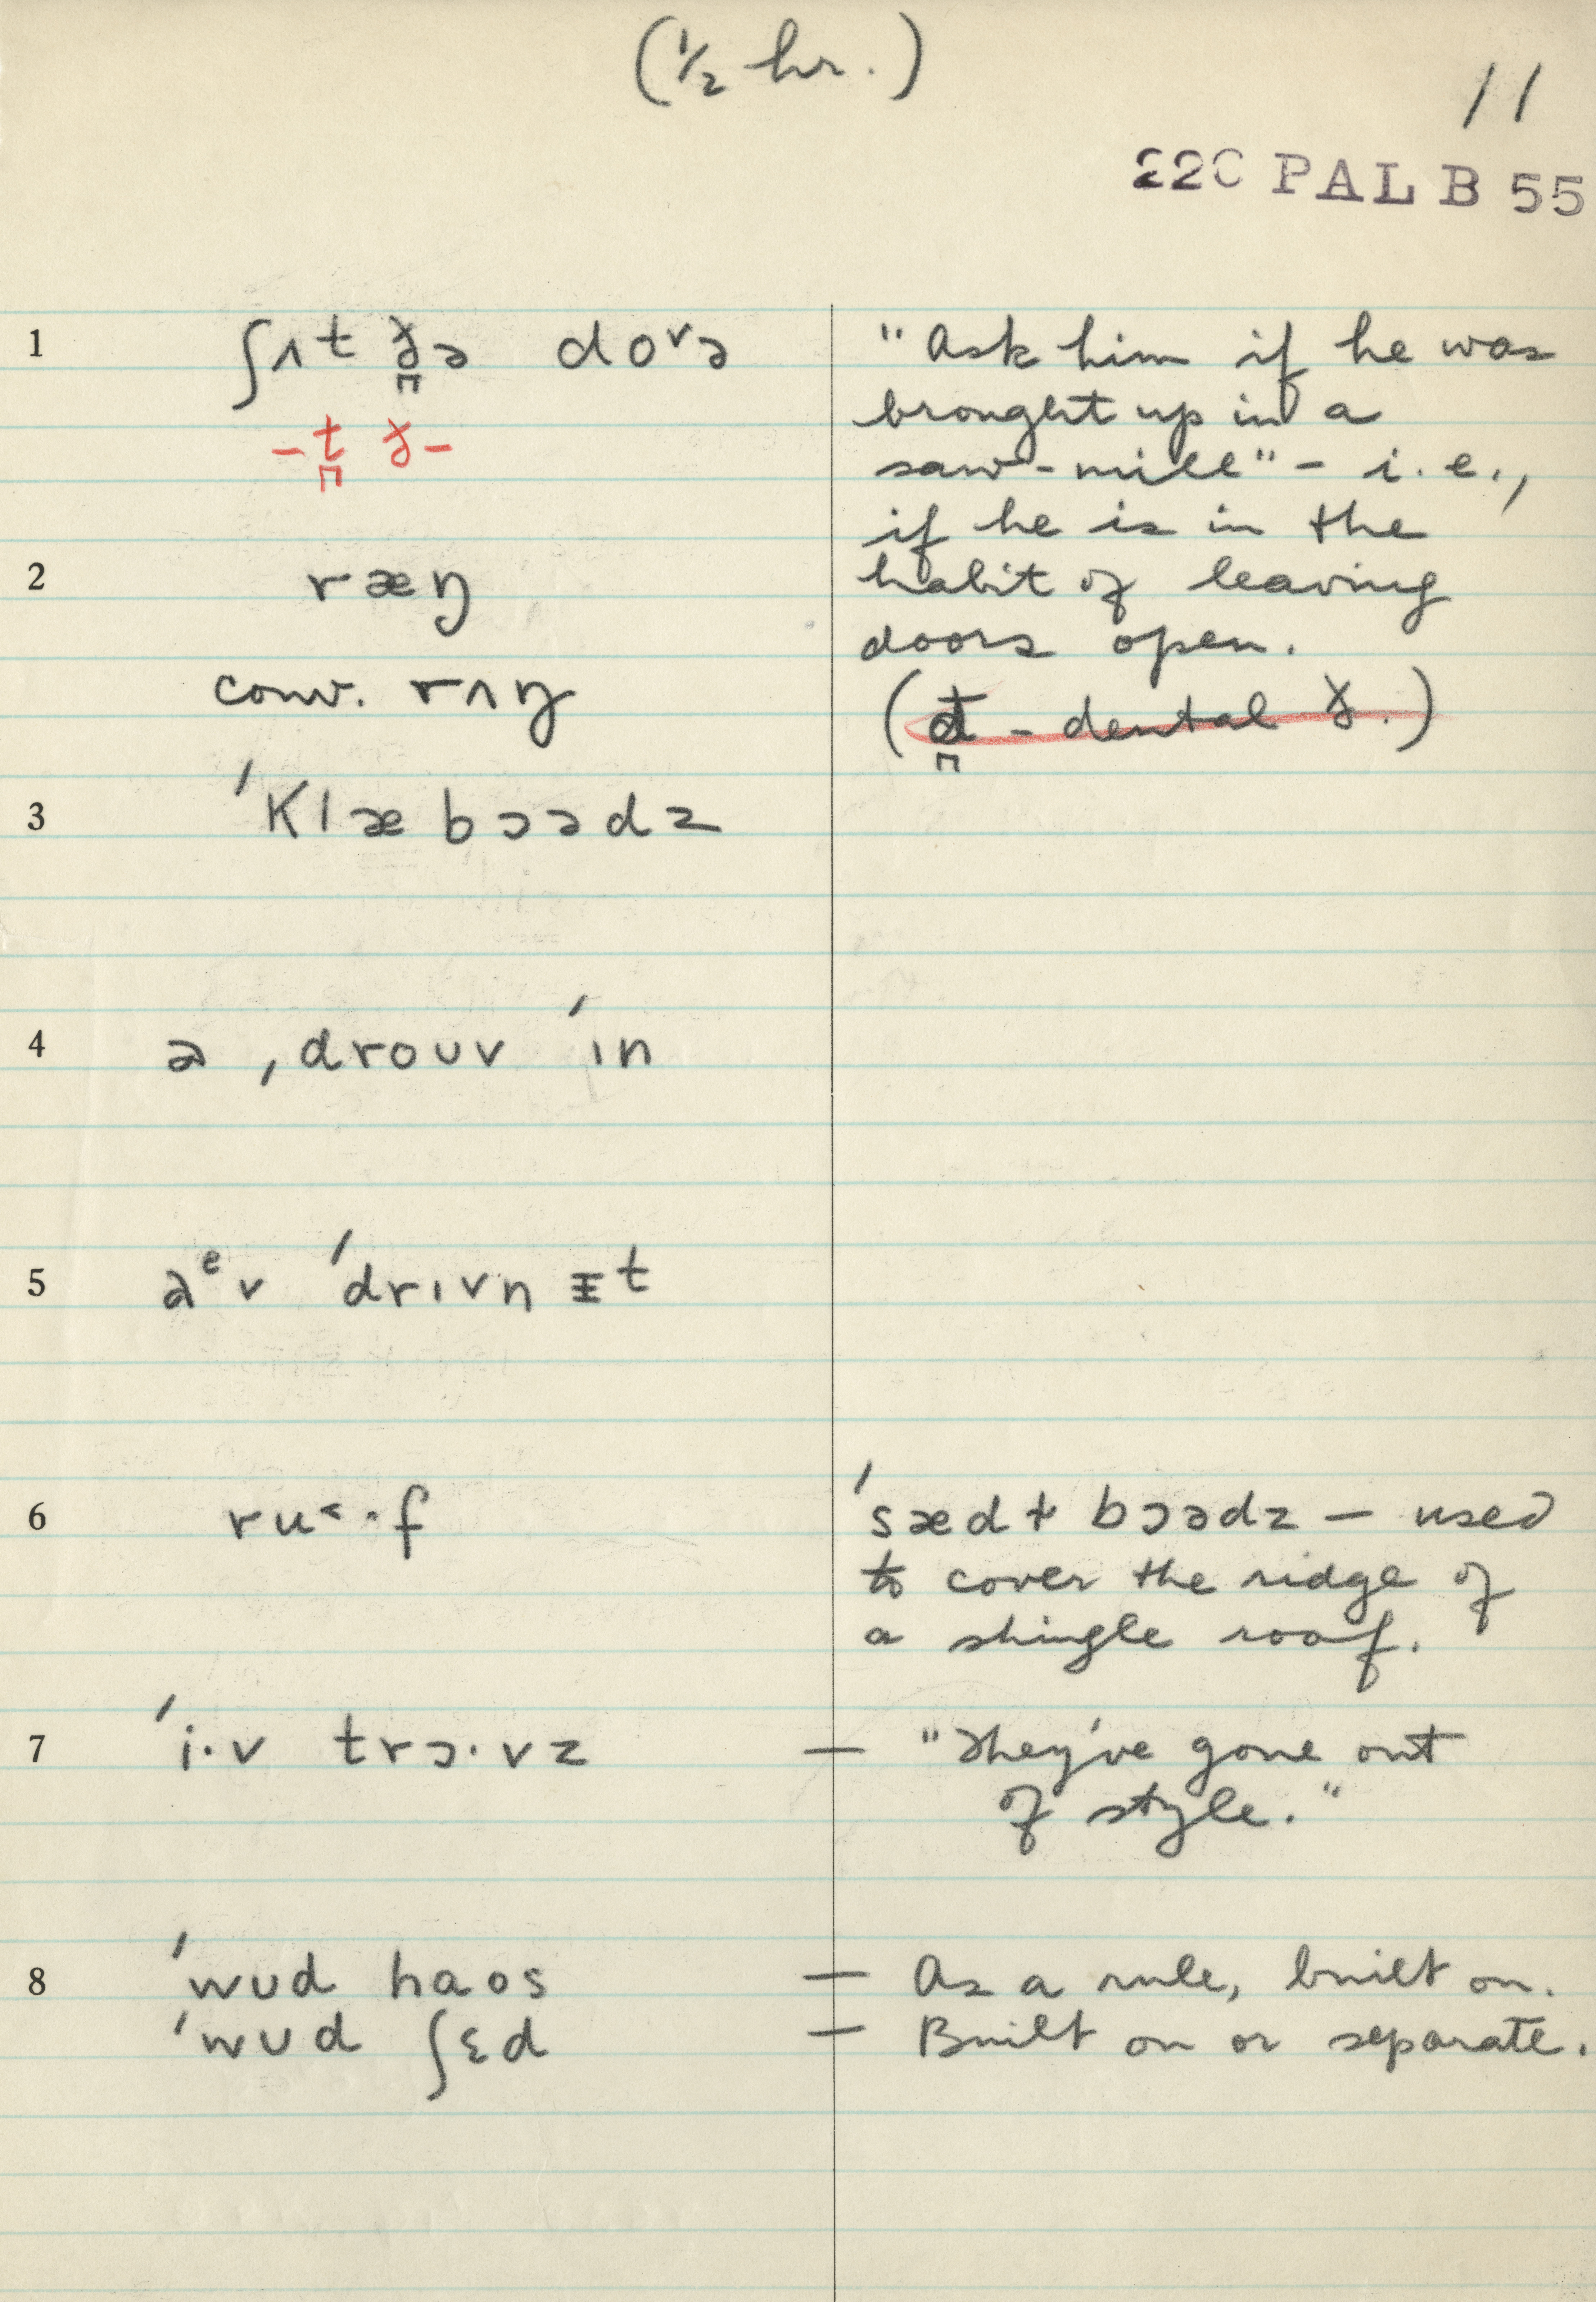 (½ hr.)
11
220 PAL B 55
1 ʃʌt ð̪ə doᵛə "Ask him if he was
-t̪ ð- brought up in a
saw-mill" – i.e.,
if he is in the
2 ræŋ habit of leaving
doors open.
conv. rʌŋ (d̪ - dental ð.)
3 ˈklæbɔədz
4 ə ˌdrouv ˈɪn
5 aᵉv ˈdrɪvn ɪt
6 ru˂·f ˈsædɫ bɔədz – used
to cover the ridge of
a shingle roof.
7 ˈi·v trɔ·vz – "They've gone out
of style."
8 ˈwʊd haos – As a rule, built on.
ˈwʊd ʃɛd – Built on or separate.